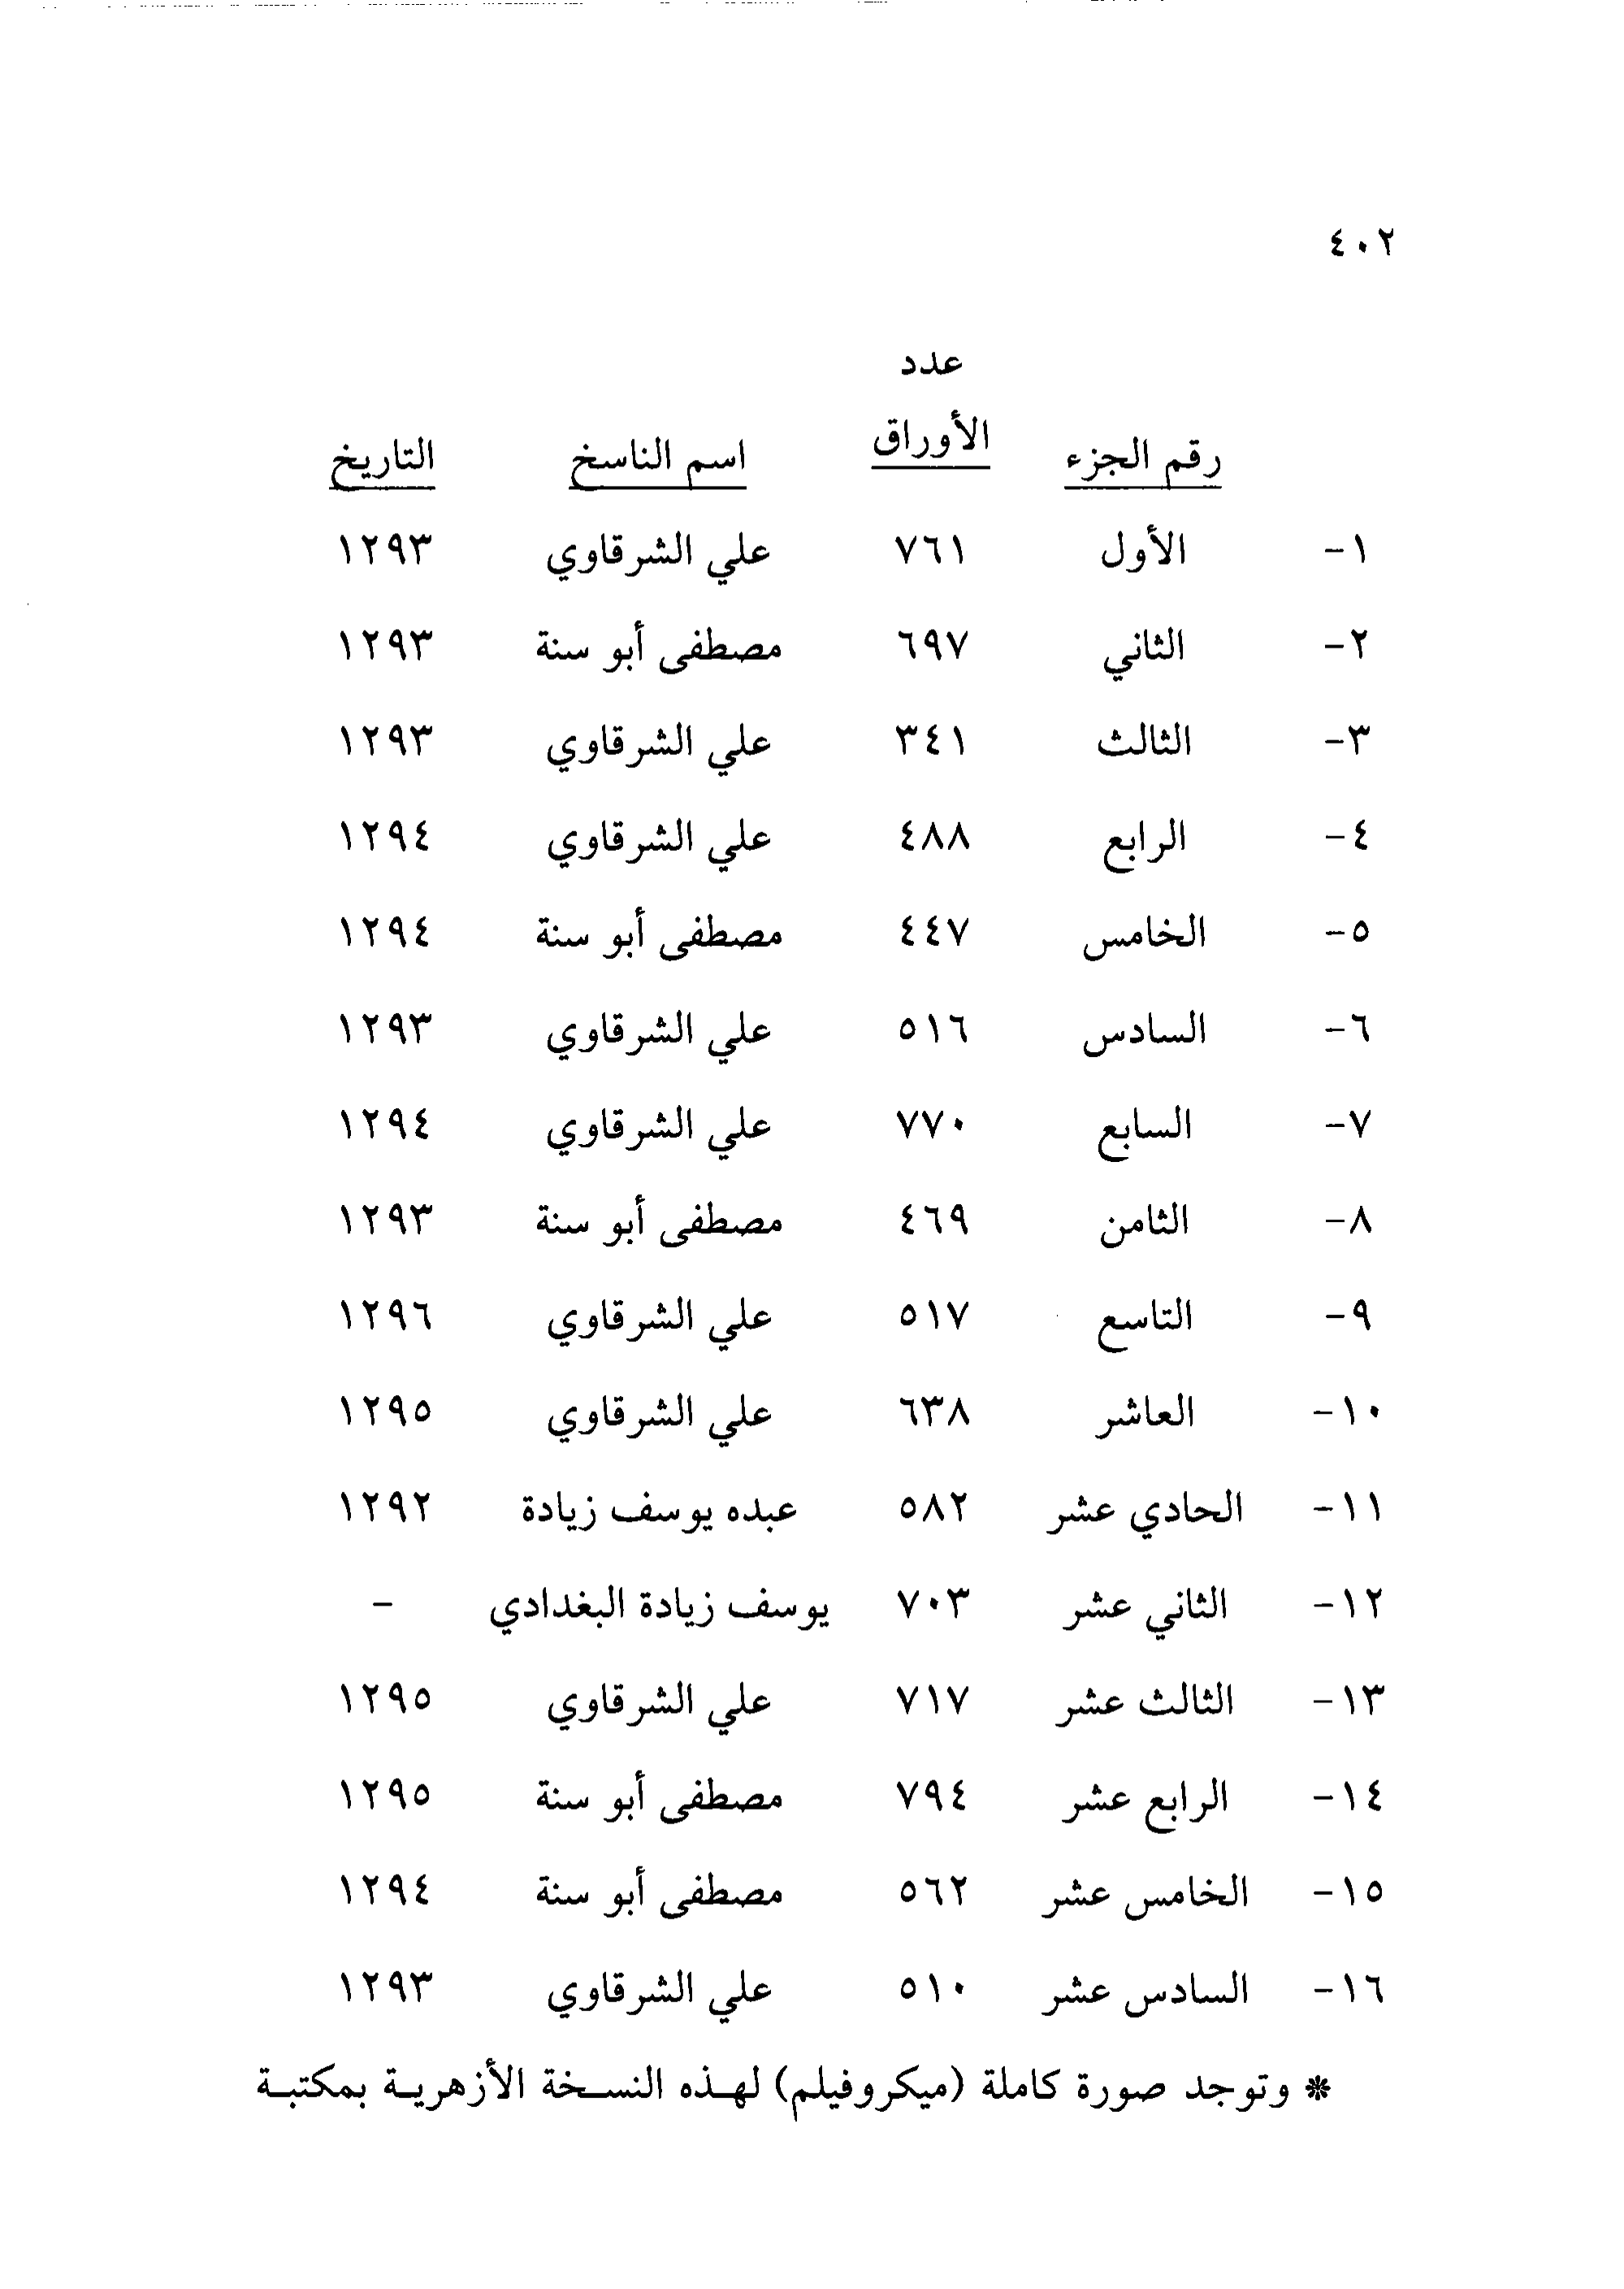 ٤٠٢
عدد
رقم الجزء الأوراق اسم الناسخ التاريخ
١- الأول ٧٦١ علي الشرقاوي ١٢٩٣
٢- الثاني ٦٩٧ مصطفى أبو سنة ١٢٩٣
٣- الثالث ٣٤١ علي الشرقاوي ١٢٩٣
٤- الرابع ٤٨٨ علي الشرقاوي ١٢٩٤
٥- الخامس ٤٤٧ مصطفى أبو سنة ١٢٩٤
٦- السادس ٥١٦ علي الشرقاوي ١٢٩٣
٧- السابع ٧٧٠ علي الشرقاوي ١٢٩٤
٨- الثامن ٤٦٩ مصطفى أبو سنة ١٢٩٣
٩- التاسع ٥١٧ علي الشرقاوي ١٢٩٦
١٠- العاشر ٦٣٨ علي الشرقاوي ١٢٩٥
١١- الحادي عشر ٥٨٢ عبده يوسف زيادة ١٢٩٢
١٢- الثاني عشر ٧٠٣ يوسف زيادة البغدادي -
١٣- الثالث عشر ٧١٧ علي الشرقاوي ١٢٩٥
١٤- الرابع عشر ٧٩٤ مصطفى أبو سنة ١٢٩٥
١٥- الخامس عشر ٥٦٢ مصطفى أبو سنة ١٢٩٤
١٦- السادس عشر ٥١٠ علي الشرقاوي ١٢٩٣
* وتوجد صورة كاملة (ميكروفيلم) لهذه النسخة الأزهرية بمكتبة